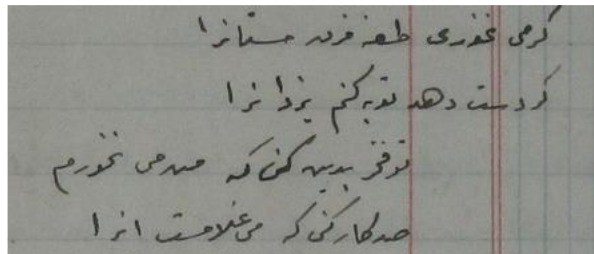 گر می نخوری طعنه مزن مستانرا
گر دست دهد توبه کنم یزدانرا
تو فخر بدین کنی که من می نخورم
صد کار کنی که می غلامست آنرا